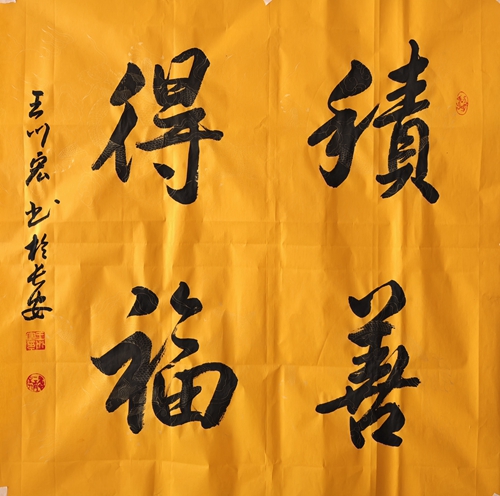 積善
得福
王川宏书於长安